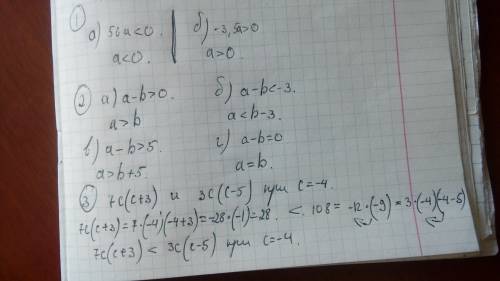 ① а) 56a<0. б) -3,5a>0
a<0. a>0.
② а) a-b>0. б) a-b<-3.
a>b a<b-3.
в) a-b>5. г) a-b=0
a>b+5. a=b.
③ 7c(c+3) и 3c(c-5) при c=-4.
7c(c+3)=7·(-4)(-4+3)=-28·(-1)=28. < 108=-12·(-9)=3·(-4)(-4-5)
7c(c+3) < 3c(c-5) при c=-4.